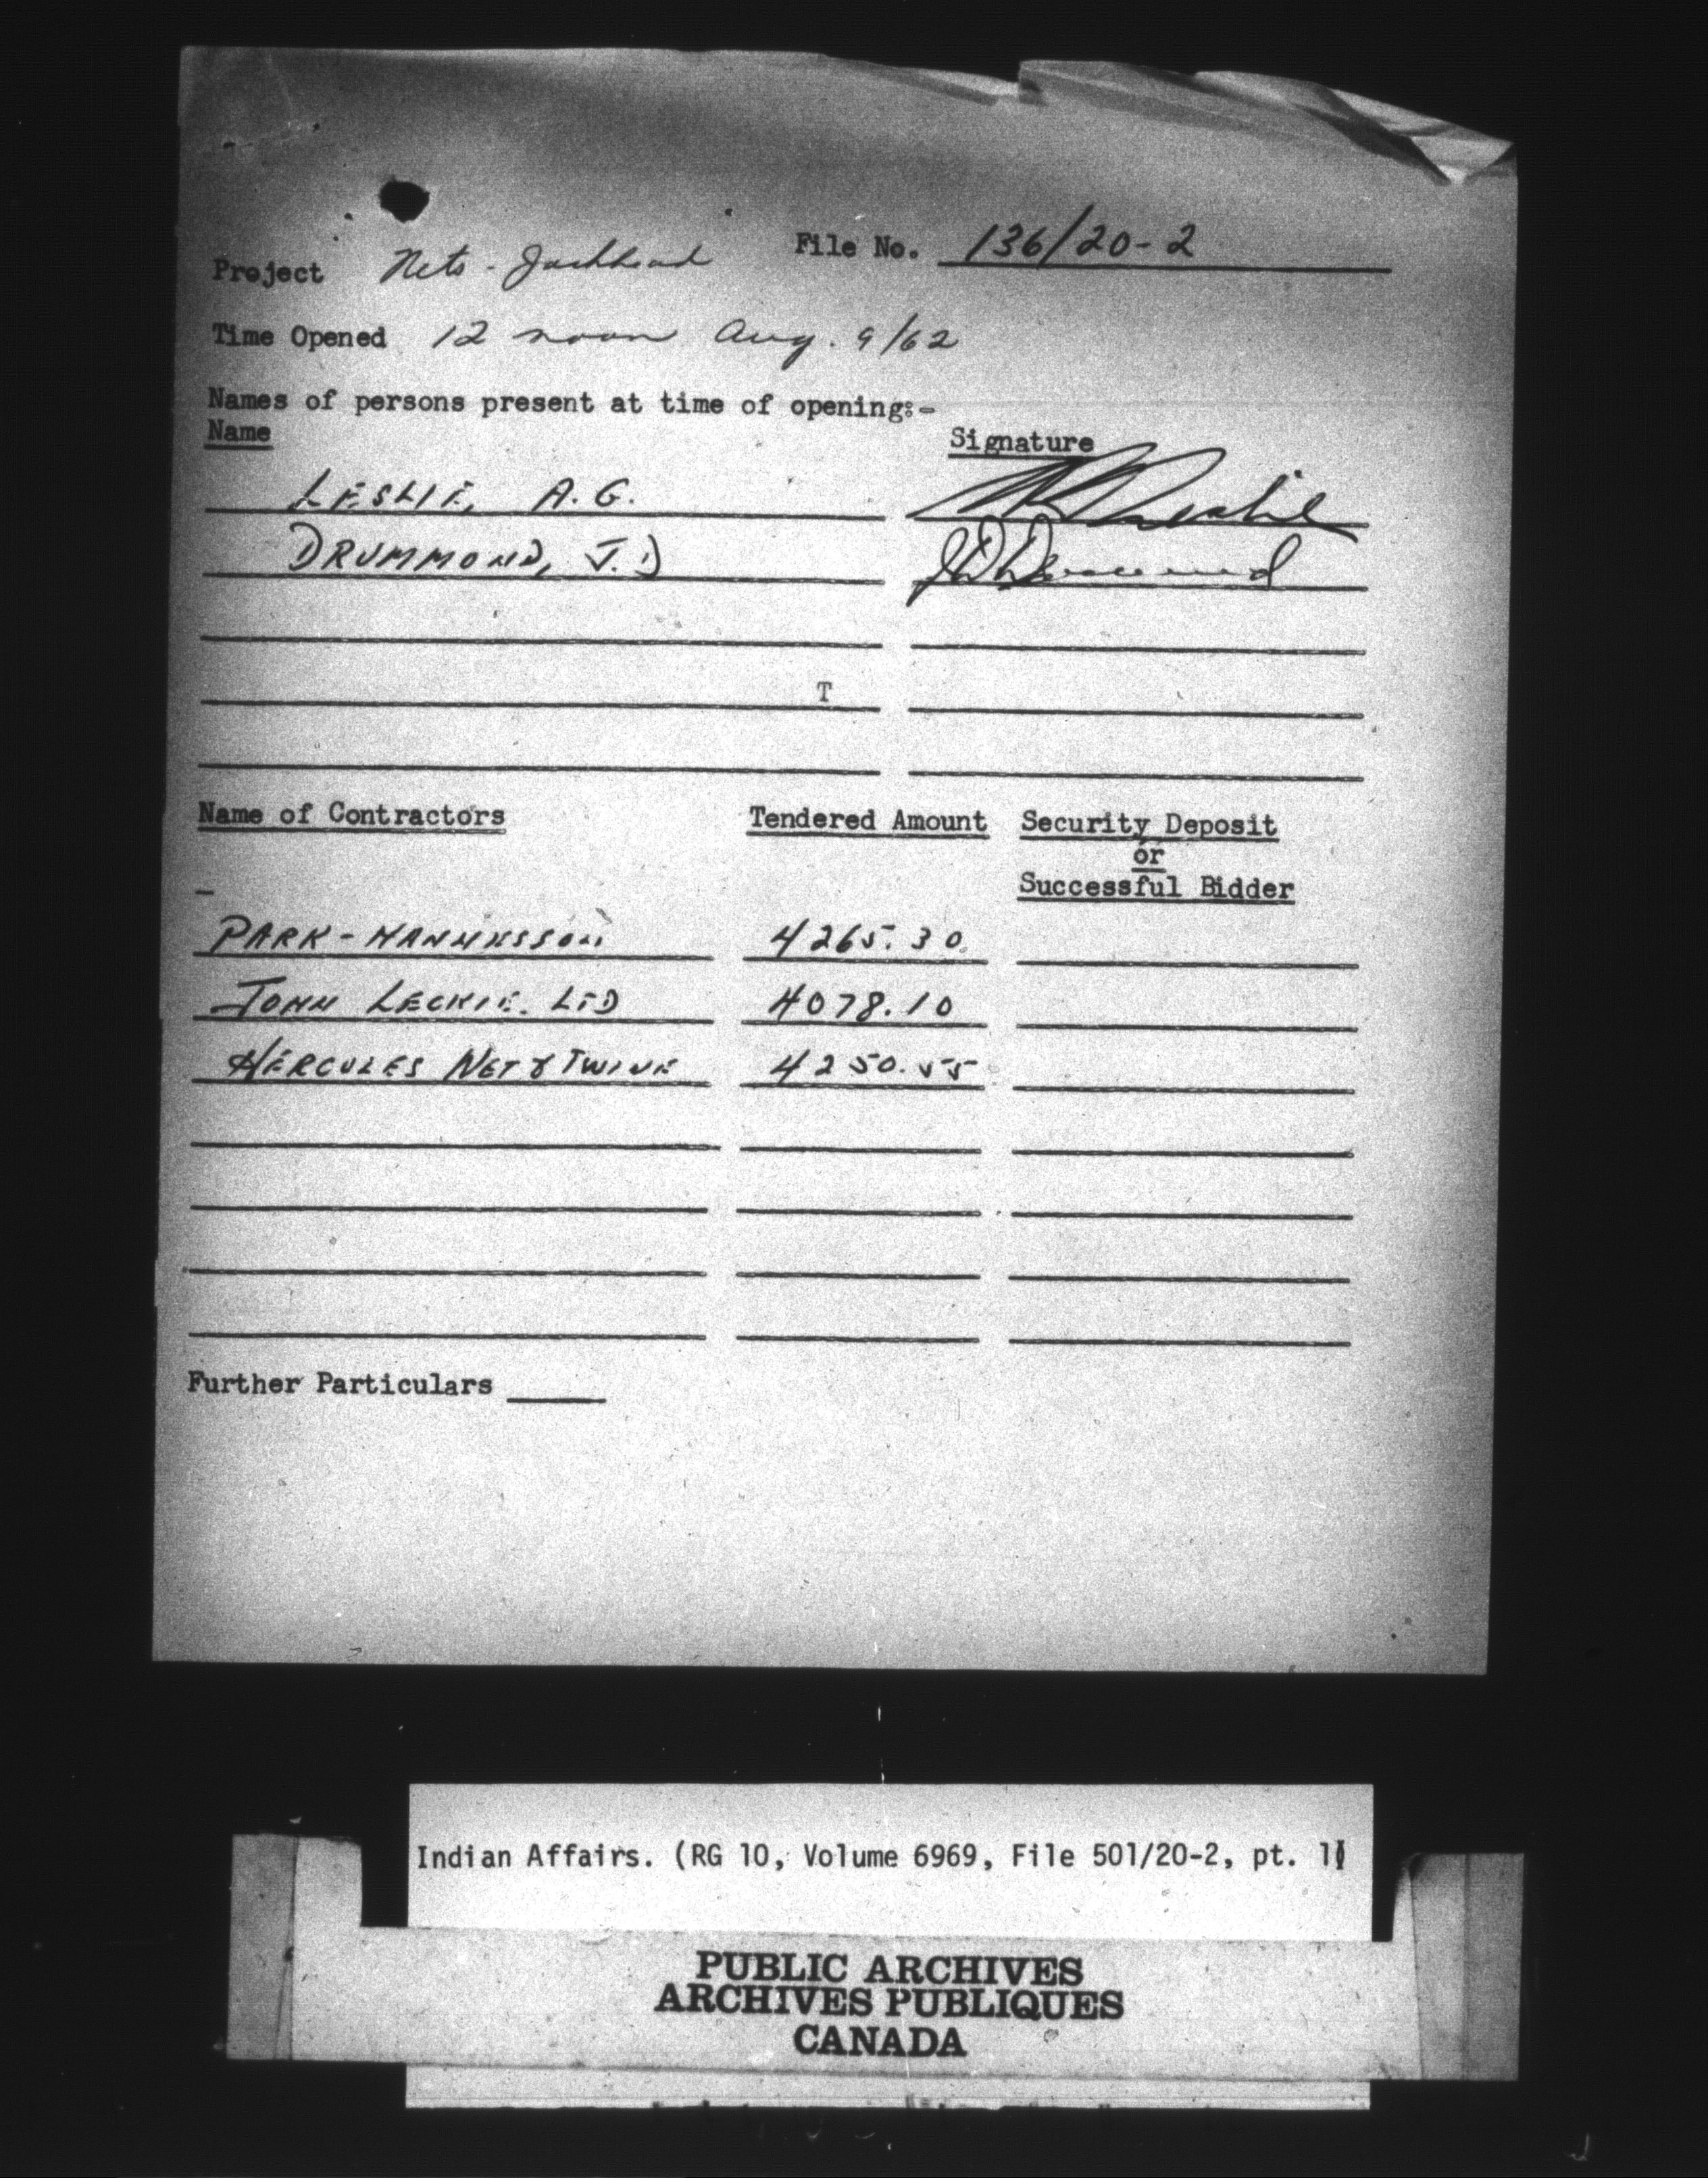 File No. 136/20-2
Project Nets - Jackhead
Time Opened 12 noon Aug. 9/62
Names of persons present at time of opening:-
Name Signature
LESLIE, A. G. Leslie
DRUMMOND, J. D JD Drummond
T
Name of Contractors Tendered Amount Security Deposit
or
Successful Bidder
PARK-HANNESSON 4265.30
JOHN LECKIE. LTD 4078.10
HERCULES NET & TWINE 4250.55
Further Particulars
Indian Affairs. (RG 10, Volume 6969, File 501/20-2, pt. 1
PUBLIC ARCHIVES
ARCHIVES PUBLIQUES
CANADA